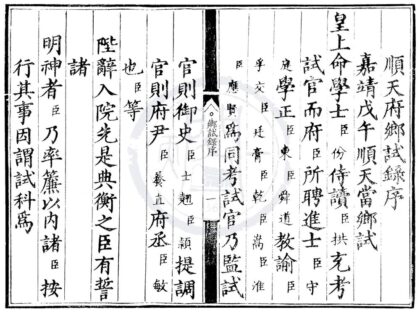 順天府鄉試錄序
嘉靖戊午順天當鄉試
皇上命學士臣份侍讀臣拱充考
試官而府臣所聘進士臣守
庭學正臣東臣舜道教諭臣
孚交臣廷膏臣乾臣嵩臣淮
臣應賢為同考試官乃監試
鄉試錄序 一
官則御史臣士翹臣頴提調
官則府尹臣養直府丞臣敏
也臣等
陛辭入院先是典衡之臣有誓
諸
明神者臣乃率簾以內諸臣按
行其事因謂試科為